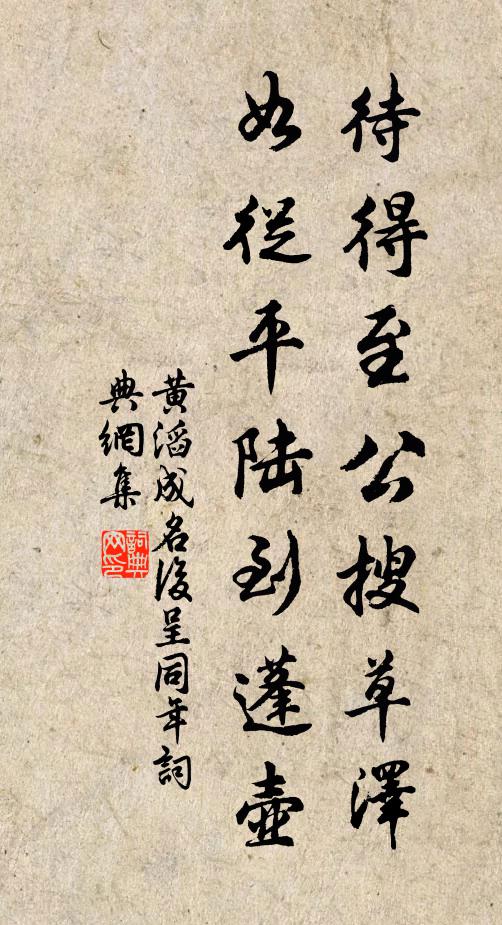 待得至公搜草澤
如從平陆到蓬壺
黄滔成名後呈同年詞
典網集
詞典网印